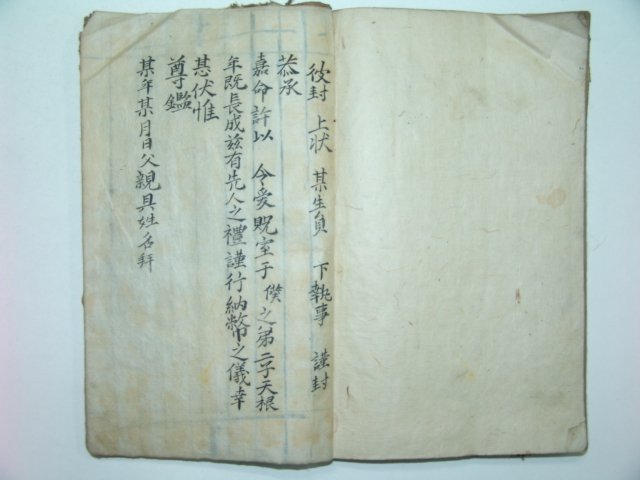 皮封 上狀 某生員 下執事 謹封
恭承
嘉命許以 令愛貺室于 僕之第二子天根
年旣長成玆有先人之禮謹行納幣之儀幸
甚伏惟
尊鑑
某年某月日父親具姓名拜